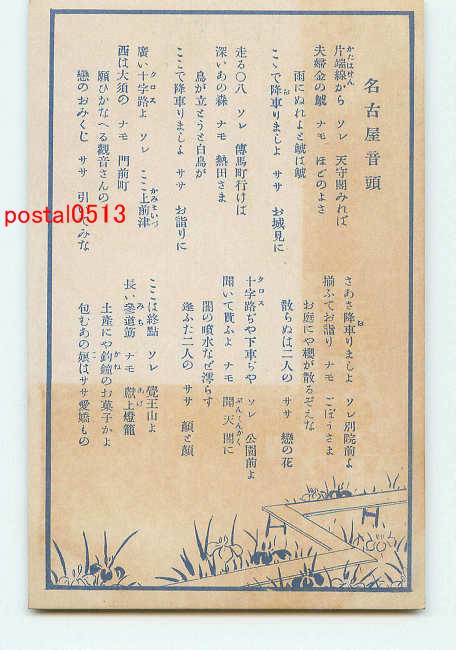 名古屋音頭
片端線から ソレ 天守閣みれば
夫婦金の鯱 ナモ ほどのよさ
雨にぬれよと鯱は鯱
こゝで降車りましよ サヽ お城見に
走る〇八 ソレ 傳馬町行けば
深いあの森 ナモ 熱田さま
鳥が立とうと白鳥が
ここで降車りましよ ササ お詣りに
廣い十字路よ ソレ ここ上前津
西は大須の ナモ 門前町
願ひかなへる觀音さんの
戀のおみくじ ササ 引いてみな
さあさ降車りましよ ソレ 別院前よ
揃ふてお詣り ナモ ごぼうさま
お庭にや櫻が散るぞえな
散らぬは二人の ササ 戀の花
十字路ぢや下車ぢや ソレ 公園前よ
聞いて貰ふよ ナモ 聞天閣に
闇の噴水なぜ濡らす
逢ふた二人の ササ 顔と顔
ここは終點 ソレ 覺王山よ
長い參道筋 ナモ 獻上燈籠
土産にや釣鐘のお菓子かよ
包むあの娘はササ愛嬌もの
postal0513